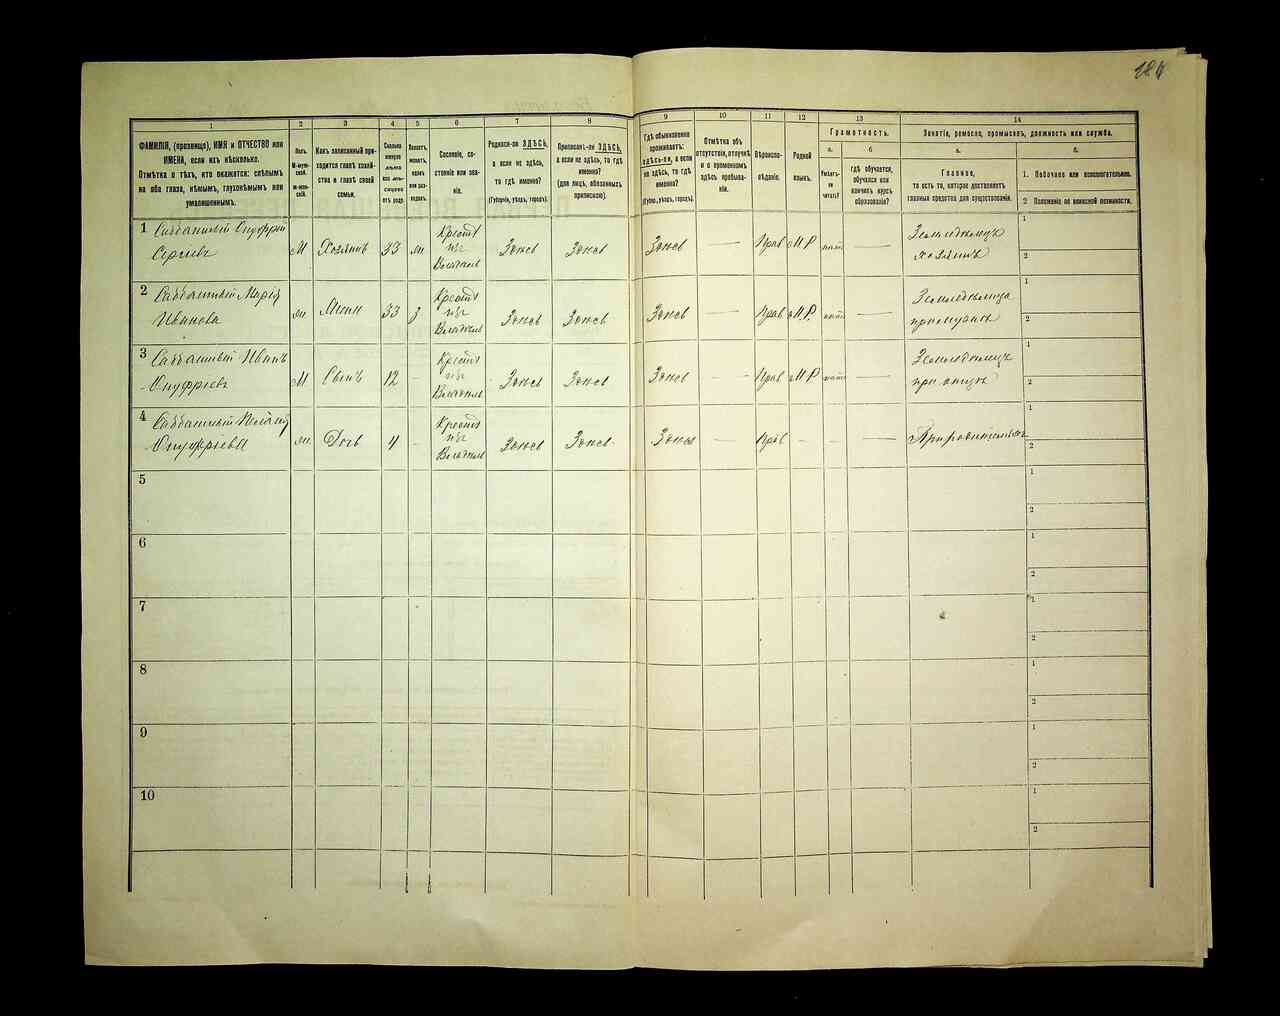 184
1 2 3 4 5 6 7 8 9 10 11 12 13 14
ФАМИЛІЯ, (прозвище), ИМЯ и ОТЧЕСТВО или
ИМЕНА, если ихъ нѣсколько.
Отмѣтка о тѣхъ, кто окажется: слѣпымъ
на оба глаза, нѣмымъ, глухонѣмымъ или
умалишеннымъ.
Полъ.
М-муж-
ской.
Ж-жен-
скій.
Какъ записанный при-
ходится главѣ хозяй-
ства и главѣ своей
семьи.
Сколько
минуло
лѣтъ
или мѣ-
сяцевъ
отъ роду.
Холостъ,
женатъ,
вдовъ
или раз-
веденъ.
Сословіе, со-
стояніе или зва-
ніе.
Родился-ли ЗДѢСЬ,
а если не здѣсь,
то гдѣ именно?
(Губернія, уѣздъ, городъ).
Приписанъ-ли ЗДѢСЬ,
а если не здѣсь, то гдѣ
именно?
(для лицъ, обязанныхъ
припискою).
Гдѣ обыкновенно
проживаетъ:
здѣсь-ли, а если
не здѣсь, то гдѣ
именно?
(Губерн., уѣздъ, городъ).
Отмѣтка объ
отсутствіи, отлучкѣ
и о временномъ
здѣсь пребыва-
ніи.
Вѣроиспо-
вѣданіе.
Родной
языкъ.
Грамотность.
а.
Умѣетъ-
ли
читать?
б
гдѣ обучается,
обучался или
кончилъ курсъ
образованія?
Занятіе, ремесло, промыселъ, должность или служба.
а.
Главное,
то есть то, которое доставляетъ
главныя средства для существованія.
б.
1. Побочное или вспомогательное.
2 Положеніе по воинской повинности.
1 Саббатный Онуфрій
Сергіевъ М Хозяинъ 33 ж Крестъ
изъ
Владѣль Здѣсь Здѣсь Здѣсь — Прав М.Р — Земледѣлецъ
хозяинъ 1
2
2 Саббатный Марія
Иванова ж Жена 33 з Крестъ
изъ
Владѣль Здѣсь Здѣсь Здѣсь — Прав М.Р. — Земледѣлица
примужѣ 1
2
3 Саббатный Иванъ
Онуфріевъ М Сынъ 12 - Крестъ
изъ
Владѣль Здѣсь Здѣсь Здѣсь — Прав М.Р — Земледѣлецъ
при отцѣ 1
2
4 Саббатный
Онуфріева ж Дочь 4 - Крестъ
изъ
Владѣль Здѣсь Здѣсь Здѣсь — Прав - - — Природителяхъ 1
2
5 1
2
6 1
2
7 1
2
8 1
2
9 1
2
10 1
2